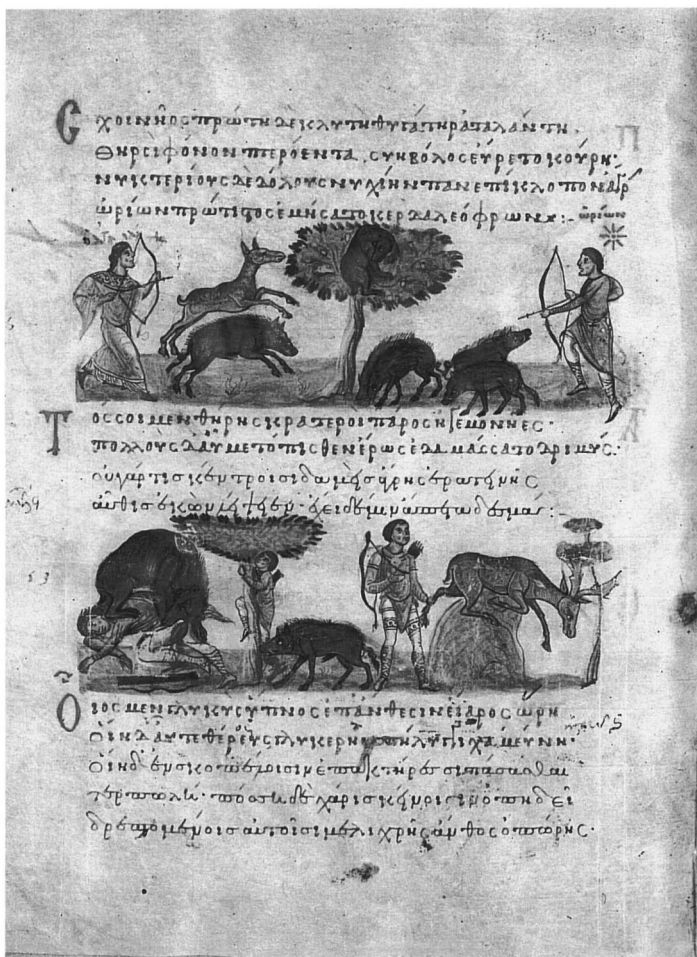 Σχοινῆος πρώτη δὲ κλυτὴ θυγάτηρ ἀταλάντη.
θηρσὶ φόνον πτερόεντα, συηβόλος εὕρετο κούρη·
νυκτερίους δὲ δόλους νυχίην πανεπίκλοπον ἄγρ
ὠρίων πρώτιστος ἐμήσατο κερδαλεόφρων :-
ὠρίων
Τόσσοι μὲν θήρης κρατεροὶ πάρος ἡγεμονῆες·
πολλοὺς δ' αὖ μετόπισθεν ἔρως ἐδαμάσσατο δριμύς·
οὐ γάρ τις κεν τροισι δαμεὶς θήρης ἐρατεινῆς
αὖθις ἑκὼν λείψειεν· ἔχει δέ μιν ἄσπετα δεσμά :-
Οἷος μὲν γλυκὺς ὕπνος ἐπ' ἄνθεσιν εἴαρος ὥρη
οἵη δ' αὖτε θέρευς γλυκερὴ σπήλυγγι χαμεύνη·
οἵη δ' ἐν σκοπέλοισιν ἐπακτήρεσσι πάσασθαι
τερπωλή· πόση δὲ χάρις κείνοισιν ὀπηδεῖ
δρεπομένοις αὐτοῖσι μελιχρῆς ἄνθος ὀπώρης·